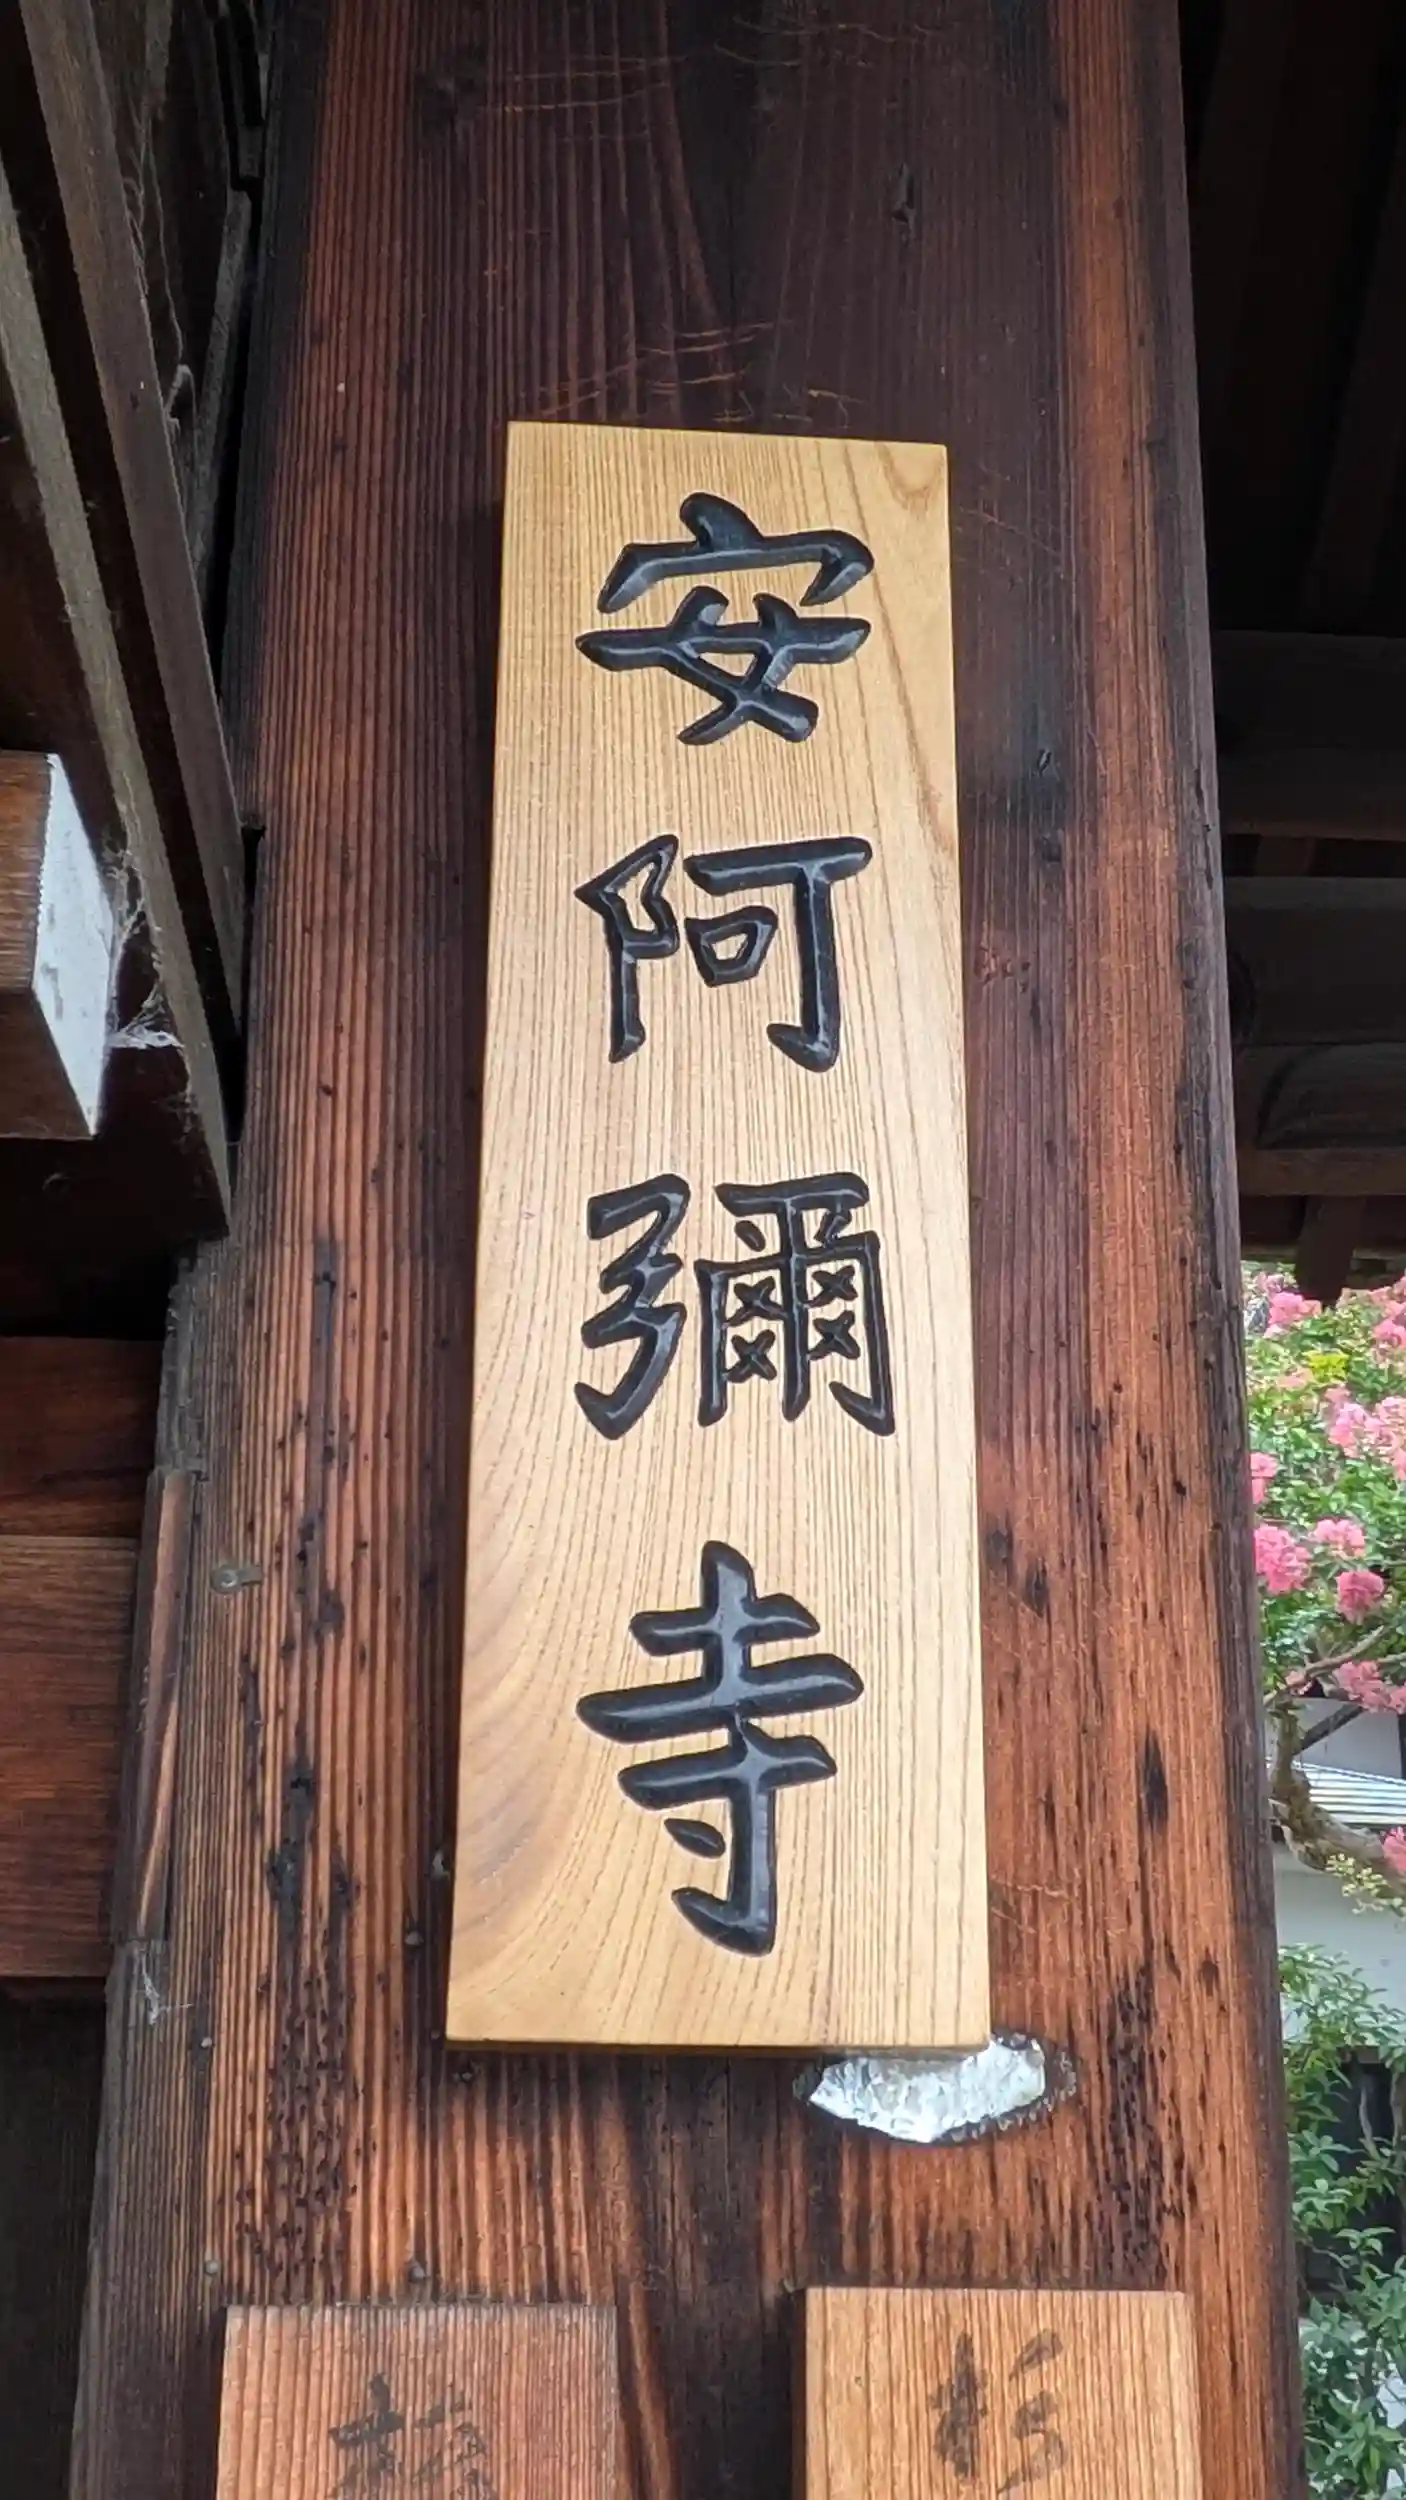 安阿彌寺
杉